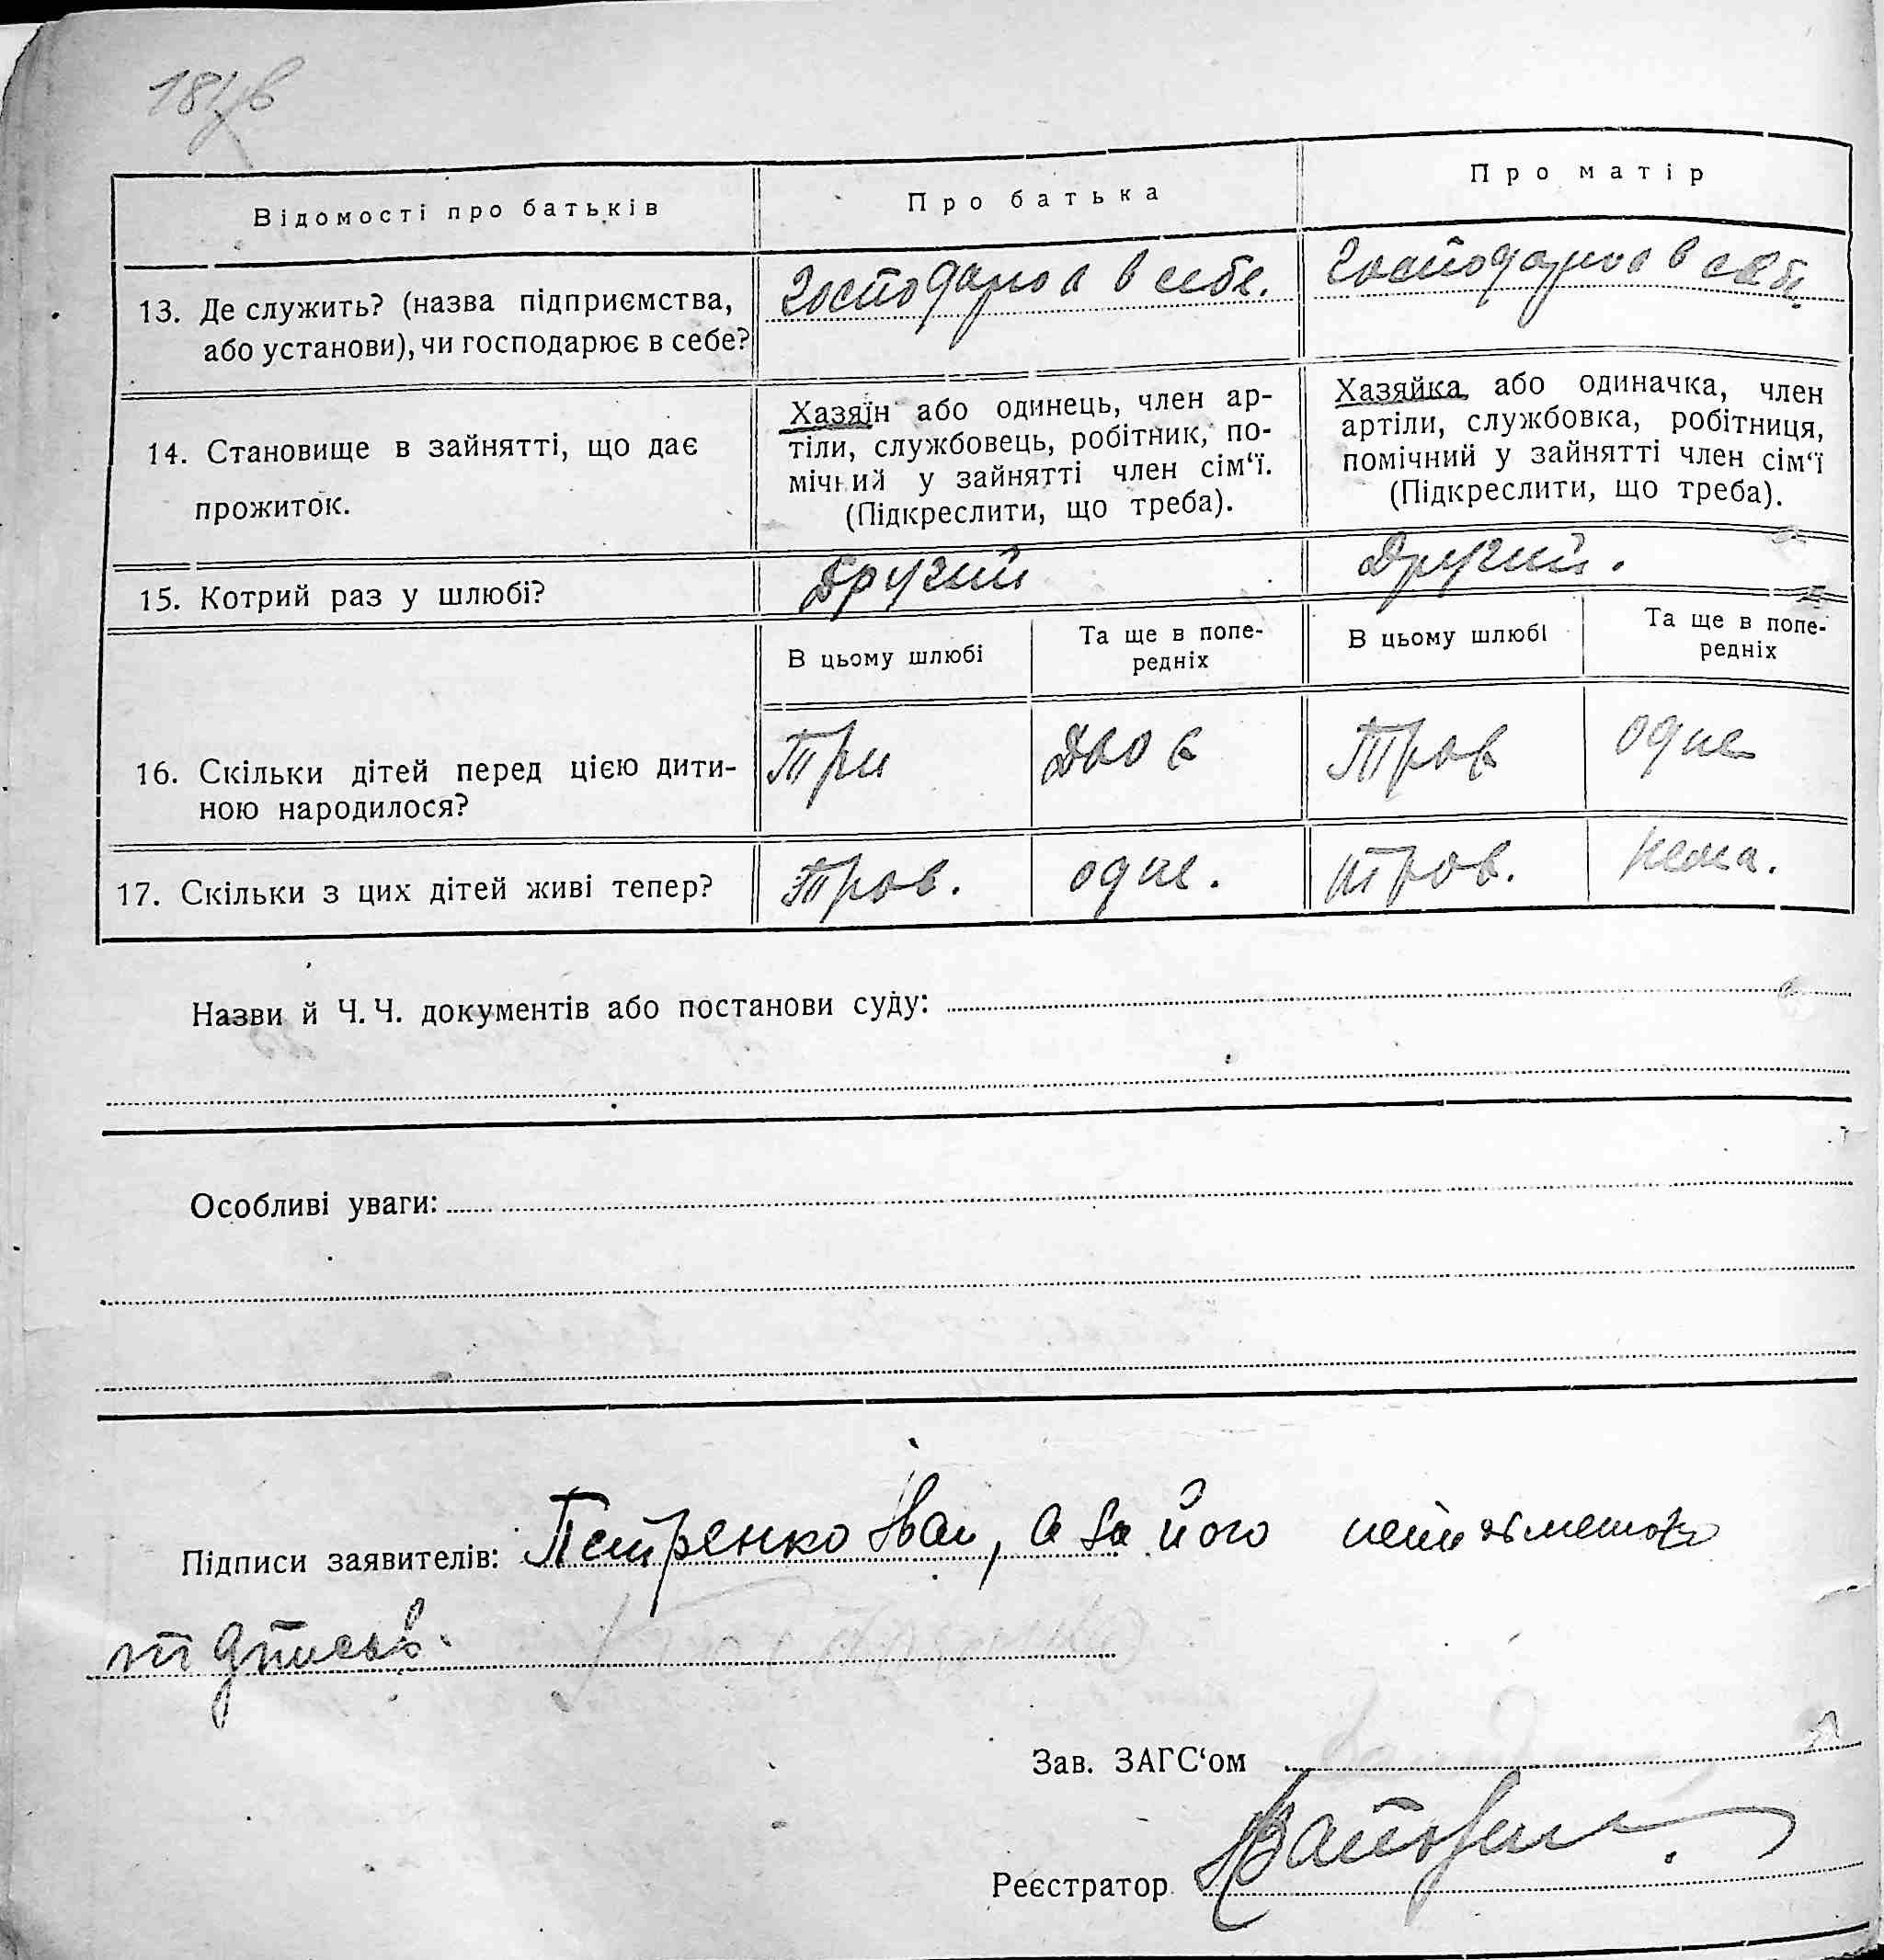 184в
Відомості про батьків
Про батька
Про матір
13. Де служить? (назва підприємства,
або установи), чи господарює в себе?
Господарює в себе.
Господарює в себе
14. Становище в зайнятті, що дає
прожиток.
Хазяїн або одинець, член ар-
тіли, службовець, робітник, по-
мічний у зайнятті член сім‘ї.
(Підкреслити, що треба).
Хазяйка або одиначка, член
артіли, службовка, робітниця,
помічний у зайнятті член сім‘ї
(Підкреслити, що треба).
15. Котрий раз у шлюбі?
Другий
Другий.
В цьому шлюбі
Та ще в попе-
редніх
В цьому шлюбі
Та ще в попе-
редніх
16. Скільки дітей перед цією дити-
ною народилося?
Три
Двоє
Троє
одне
17. Скільки з цих дітей живі тепер?
Троє.
одне.
Троє.
нема.
Назви й Ч. Ч. документів або постанови суду:
Особливі уваги:
Підписи заявителів: Петренко Іван, а за його
підписав
Зав. ЗАГС‘ом
Реєстратор